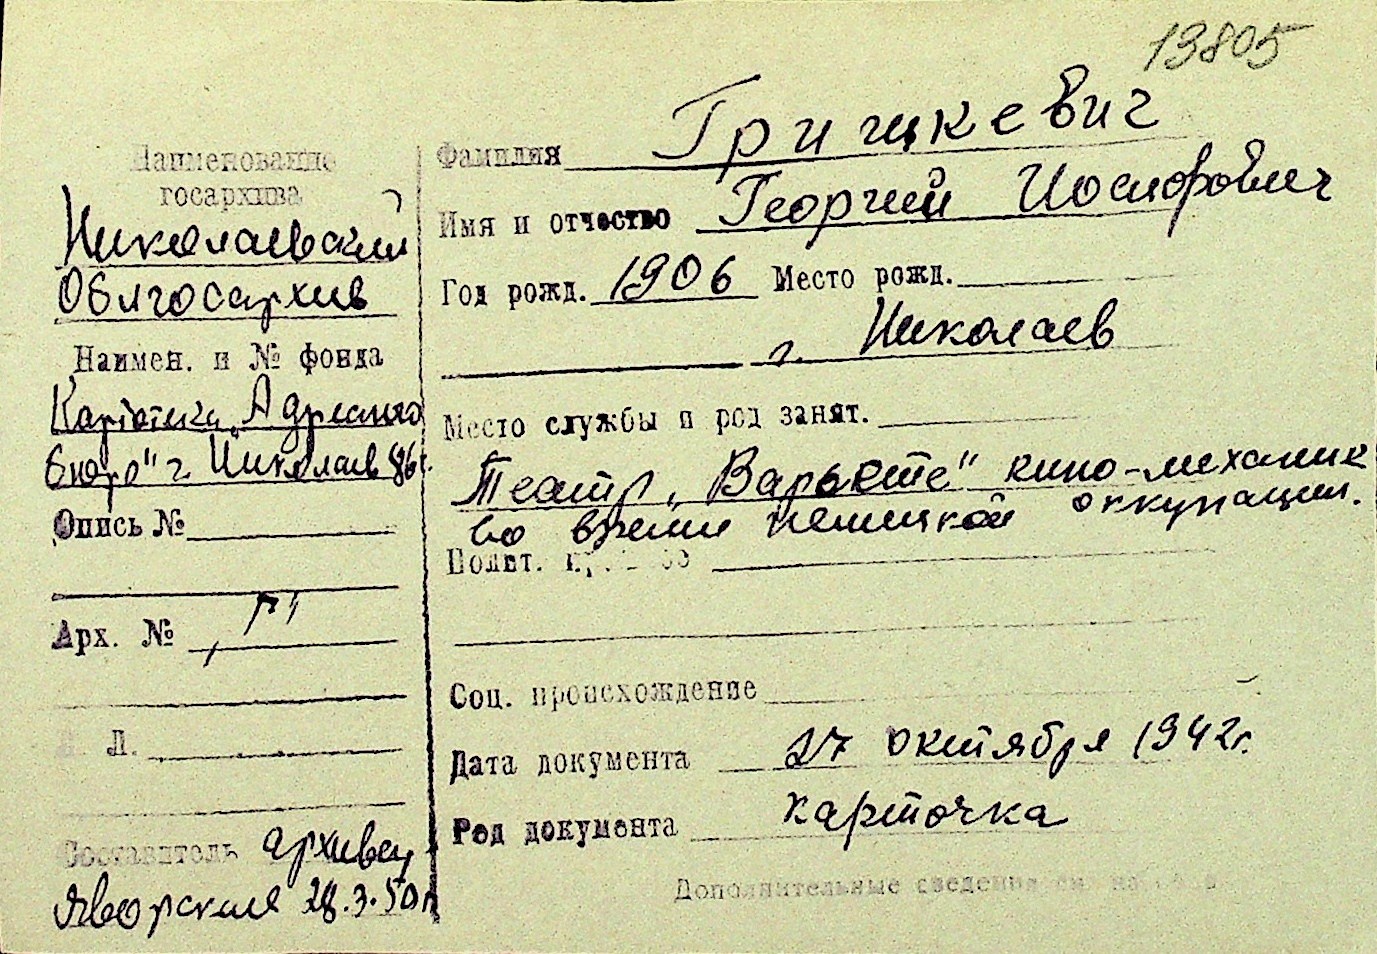 13805
Наименование
госархива
Николаевский
Облгосархив
Наимен. и № фонда
Картотека „Адресного
бюро" г. Николаев
Опись №
Арх. № „Г"
Л.
Составитель архивец
Яворская 28.3.50г
Фамилия Грицкевич
Имя и отчество Георгий Иосифович
Год рожд. 1906 Место рожд.
г. Николаев
Место службы и род занят.
Театр „Варьете" кино-механик
во время немецкой оккупации.
Полит.
Соц. происхождение
Дата документа 27 октября 1942г.
Род документа карточка
Дополнительные сведения